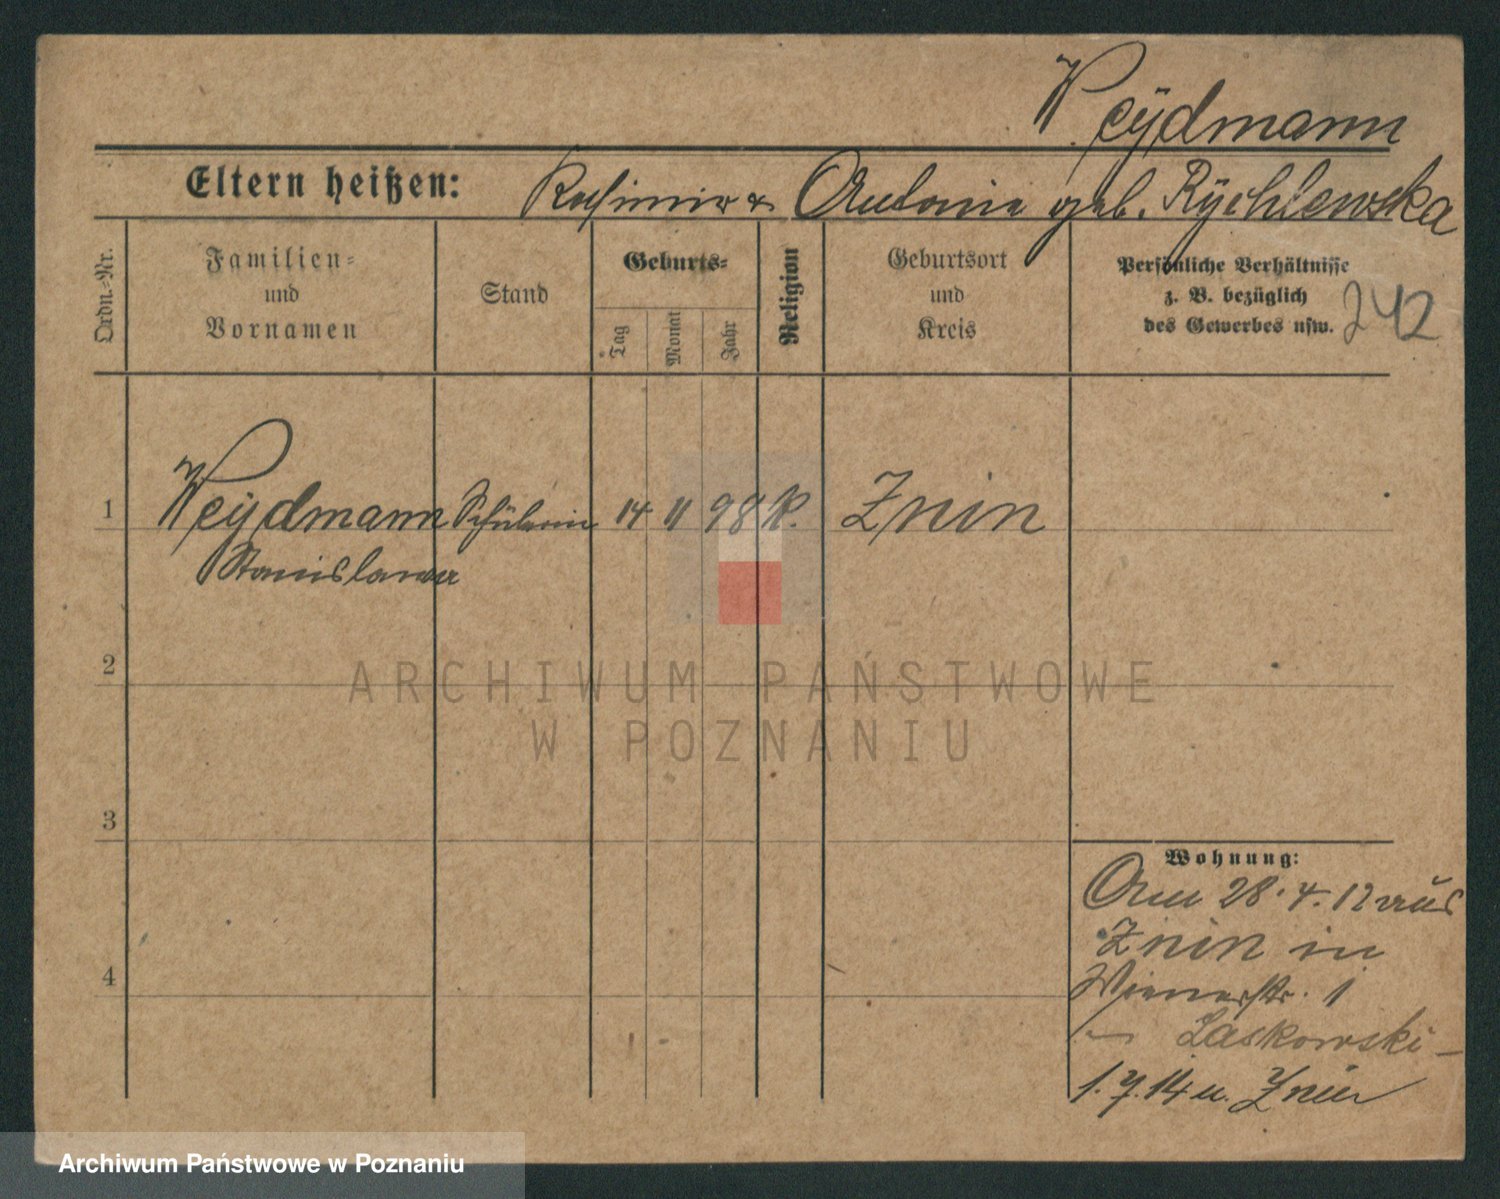 Weÿdmann
Eltern heißen: Kasimir & Antonie geb. Rÿchlewska
Ordn.=Nr.
Familien=
und
Vornamen
Stand
Geburts=
Tag
Monat
Jahr
Religion
Geburtsort
und
Kreis
Persönliche Verhältnisse
z. B. bezüglich
des Gewerbes usw.
242
1 Weÿdmann Schülerin 14 11 98 K. Znin
Stanislawa
2
ARCHIWUM PAŃSTWOWE
W POZNANIU
3
Wohnung:
Am 28.4.12 aus
Znin in
4
Wienerstr. 1
– Laskowski –
1.7.14 n. Znin
Archiwum Państwowe w Poznaniu